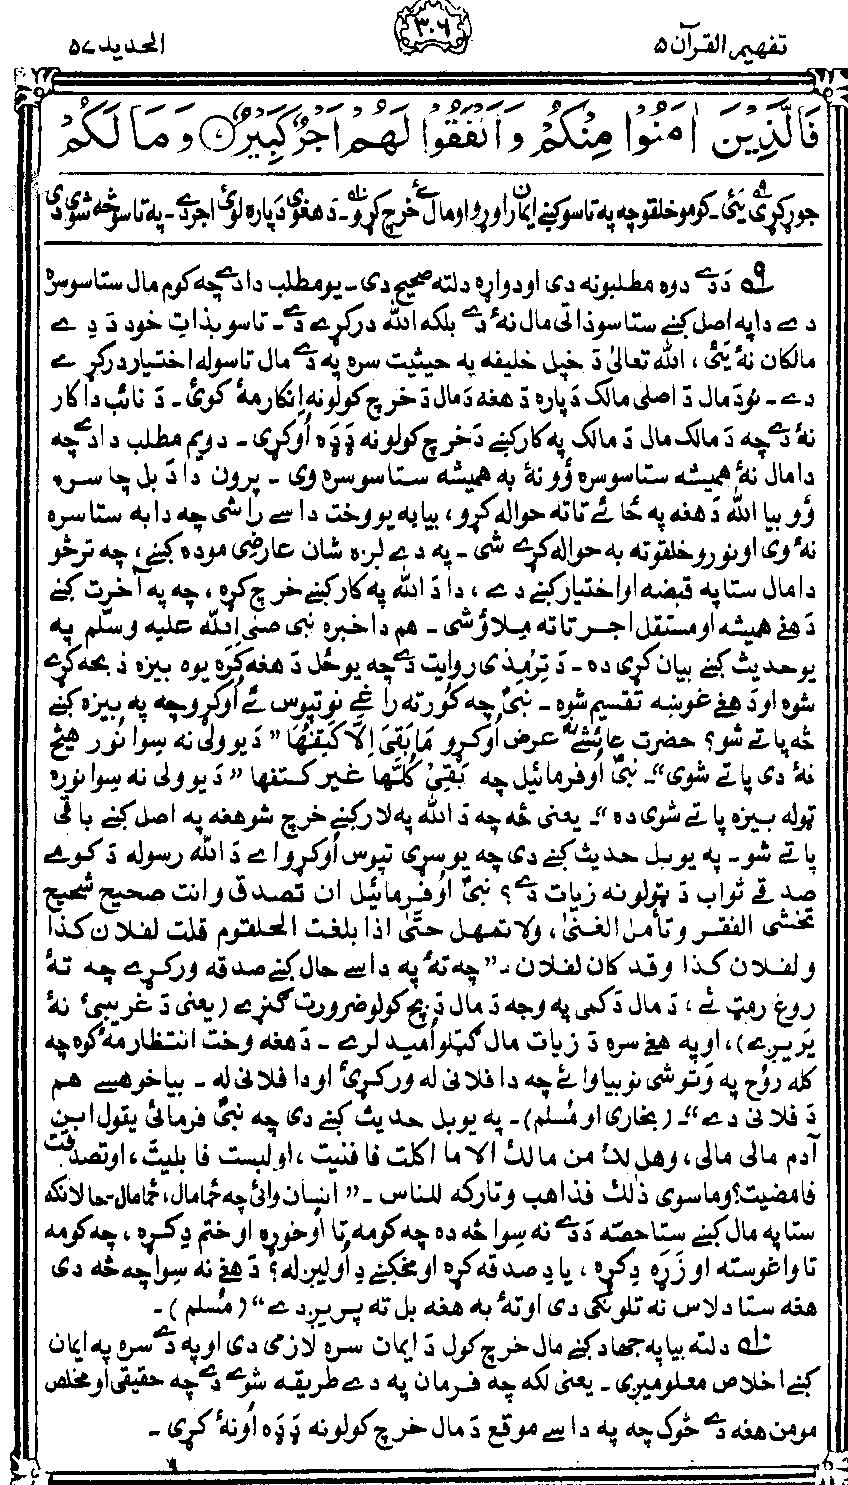 تفهيم القرآن ۵
۳۰۶
الحديد ۵۷
فَالَّذِيْنَ اٰمَنُوْا مِنْكُمْ وَاَنْفَقُوْا لَهُمْ اَجْرٌ كَبِيْرٌ ﴿۷﴾ وَمَا لَكُمْ
جوړ کړي يئ۔ کومو خلقو چه په تاسو کښے ايمان راوړو او مال ئے خرچ کړو۔ د هغوئ دپاره لوئ اجر دے۔ په تاسو څه شوي دي
۹ دَ دے دوه مطلبونه دي او دواړه دلته صحيح دي۔ يو مطلب دا دے چه کوم مال ستاسو سره
دے دا په اصل کښے ستاسو ذاتي مال نۀ دے بلکه الله درکړے دے۔ تاسو بذاتِ خود دَ دِ ے
مالکان نۀ يَئ، الله تعالیٰ دَ خپل خليفه په حيثيت سره په دے مال تاسو له اختيار درکړے
دے۔ نو دَ مال دَ اصلي مالک دَپاره دَ هغه دَ مال دَ خرچ کولو نه اِنکار مۀ کوئ۔ دَ نائب دا کار
نۀ دے چه دَ مالک مال دَ مالک په کار کښے دَ خرچ کولو نه ډډه اُوکړي۔ دويم مطلب دا دے چه
دا مال نۀ هميشه ستاسو سره وُو نۀ به هميشه ستاسو سره وي۔ پرون دا دَ بل چا سره
وُو بيا الله دَ هغه په ځائے تا ته حواله کړو، بيا به يو وخت داسے راشي چه دا به ستا سره
نۀ وي او نورو خلقو ته به حواله کړے شي۔ په دے لږه شان عارضي موده کښے، چه ترڅو
دا مال ستا په قبضه او اختيار کښے دے، دا دَ الله په کار کښے خرچ کړه، چه په آخرت کښے
دَ هغے هميشه او مستقل اجر تا ته ميلاؤ شي۔ هم دا خبره نبي صلی الله عليه وسلم په
يو حديث کښے بيان کړي ده۔ دَ ترمذي روايت دے چه يو ځل دَ هغه کره يوه بيزه ذبحه کړے
شوه او دَ هغے غوښه تقسيم شوه۔ نبيؐ چه کور ته راغے نو تپوس ئے اُوکړو چه په بيزه کښے
څه پاتے شو؟ حضرت عائشےؓ عرض اُوکړو مَا بَقِيَ اِلَّا كَتِفُهَا "دَ يو ولي نه سِوا نور هيڅ
نۀ دي پاتے شوي"۔ نبيؐ اُوفرمائيل چه بَقِيَ كُلُّهَا غير كتفها "دَ يو ولي نه سِوا نوره
ټوله بيزه پاتے شوي ده"۔ يعني څه چه دَ الله په لار کښے خرچ شو هغه په اصل کښے باقي
پاتے شو۔ په يو بل حديث کښے دي چه يو سړي تپوس اُوکړو اے دَ الله رسوله دَ کومے
صدقے ثواب دَ ټولو نه زيات دے؟ نبيؐ اوُفرمائيل ان تصدق وانت صحيح شحيح
تخشى الفقر وتأمل الغنىٰ، ولا تمهل حتّٰى اذا بلغت الحلقوم قلت لفلان كذا
ولفلان كذا وقد كان لفلان۔ "چه تۀ په داسے حال کښے صدقه ورکړے چه تۀ
روغ رمټ ئے، دَ مال دَ کمي په وجه دَ مال دَ بچ کولو ضرورت ګنړے (يعني دَ غريبئ نۀ
يريږے)، او په هغے سره دَ زيات مال ګټلو اُميد لرے۔ دَ هغه وخت انتظار مۀ کوه چه
کله روُح په وتو شي نو بيا وائے چه دا فلاني له ورکړئ او دا فلاني له۔ بيا خو هسے هم
دَ فلاني دے"۔ (بخاري او مُسلم)۔ په يو بل حديث کښے دي چه نبيؐ فرمائي يقول ابن
آدم مالي مالي، وهل لك من مالك الا ما اكلت فافنيت، او لبست فابليت، او تصدقت
فامضيت؟ وما سوى ذٰلك فذاهب وتاركه للناس۔ "انسان وائي چه ځما مال، ځما مال۔ حالانکه
ستا په مال کښے ستا حصّه دَ دے نه سِوا څه ده چه کومه تا اُوخوړه او ختم دِ کړه، چه کومه
تا واغوسته او زَړه دِ کړه، يا دِ صدقه کړه او مخکښے دِ اُوليږله؟ دَ هغے نه سِوا چه څه دي
هغه ستا د لاس نه تلونکي دي او تۀ به هغه بل ته پريږدے" (مُسلم)۔
۱۰ دلته بيا په جهاد کښے مال خرچ کول دَ ايمان سره لازمي دي او په دے سره په ايمان
کښے اخلاص معلوميږي۔ يعني لکه چه فرمان په دے طريقه شوے دے چه حقيقي او مخلص
مومن هغه دے څوک چه په داسے موقع دَ مال خرچ کولو نه ډډه اُونۀ کړي۔